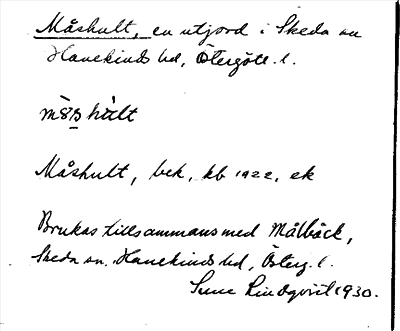 Måshult, en utjord i Skeda sn
Hanekinds hd, Östergötl. l.
Måshult, bek, kb 1922, ek
Brukas tillsammans med Målbäck,
Skeda sn. Hanekinds hd, Österg. l.
Sune Lindqvist 1930.